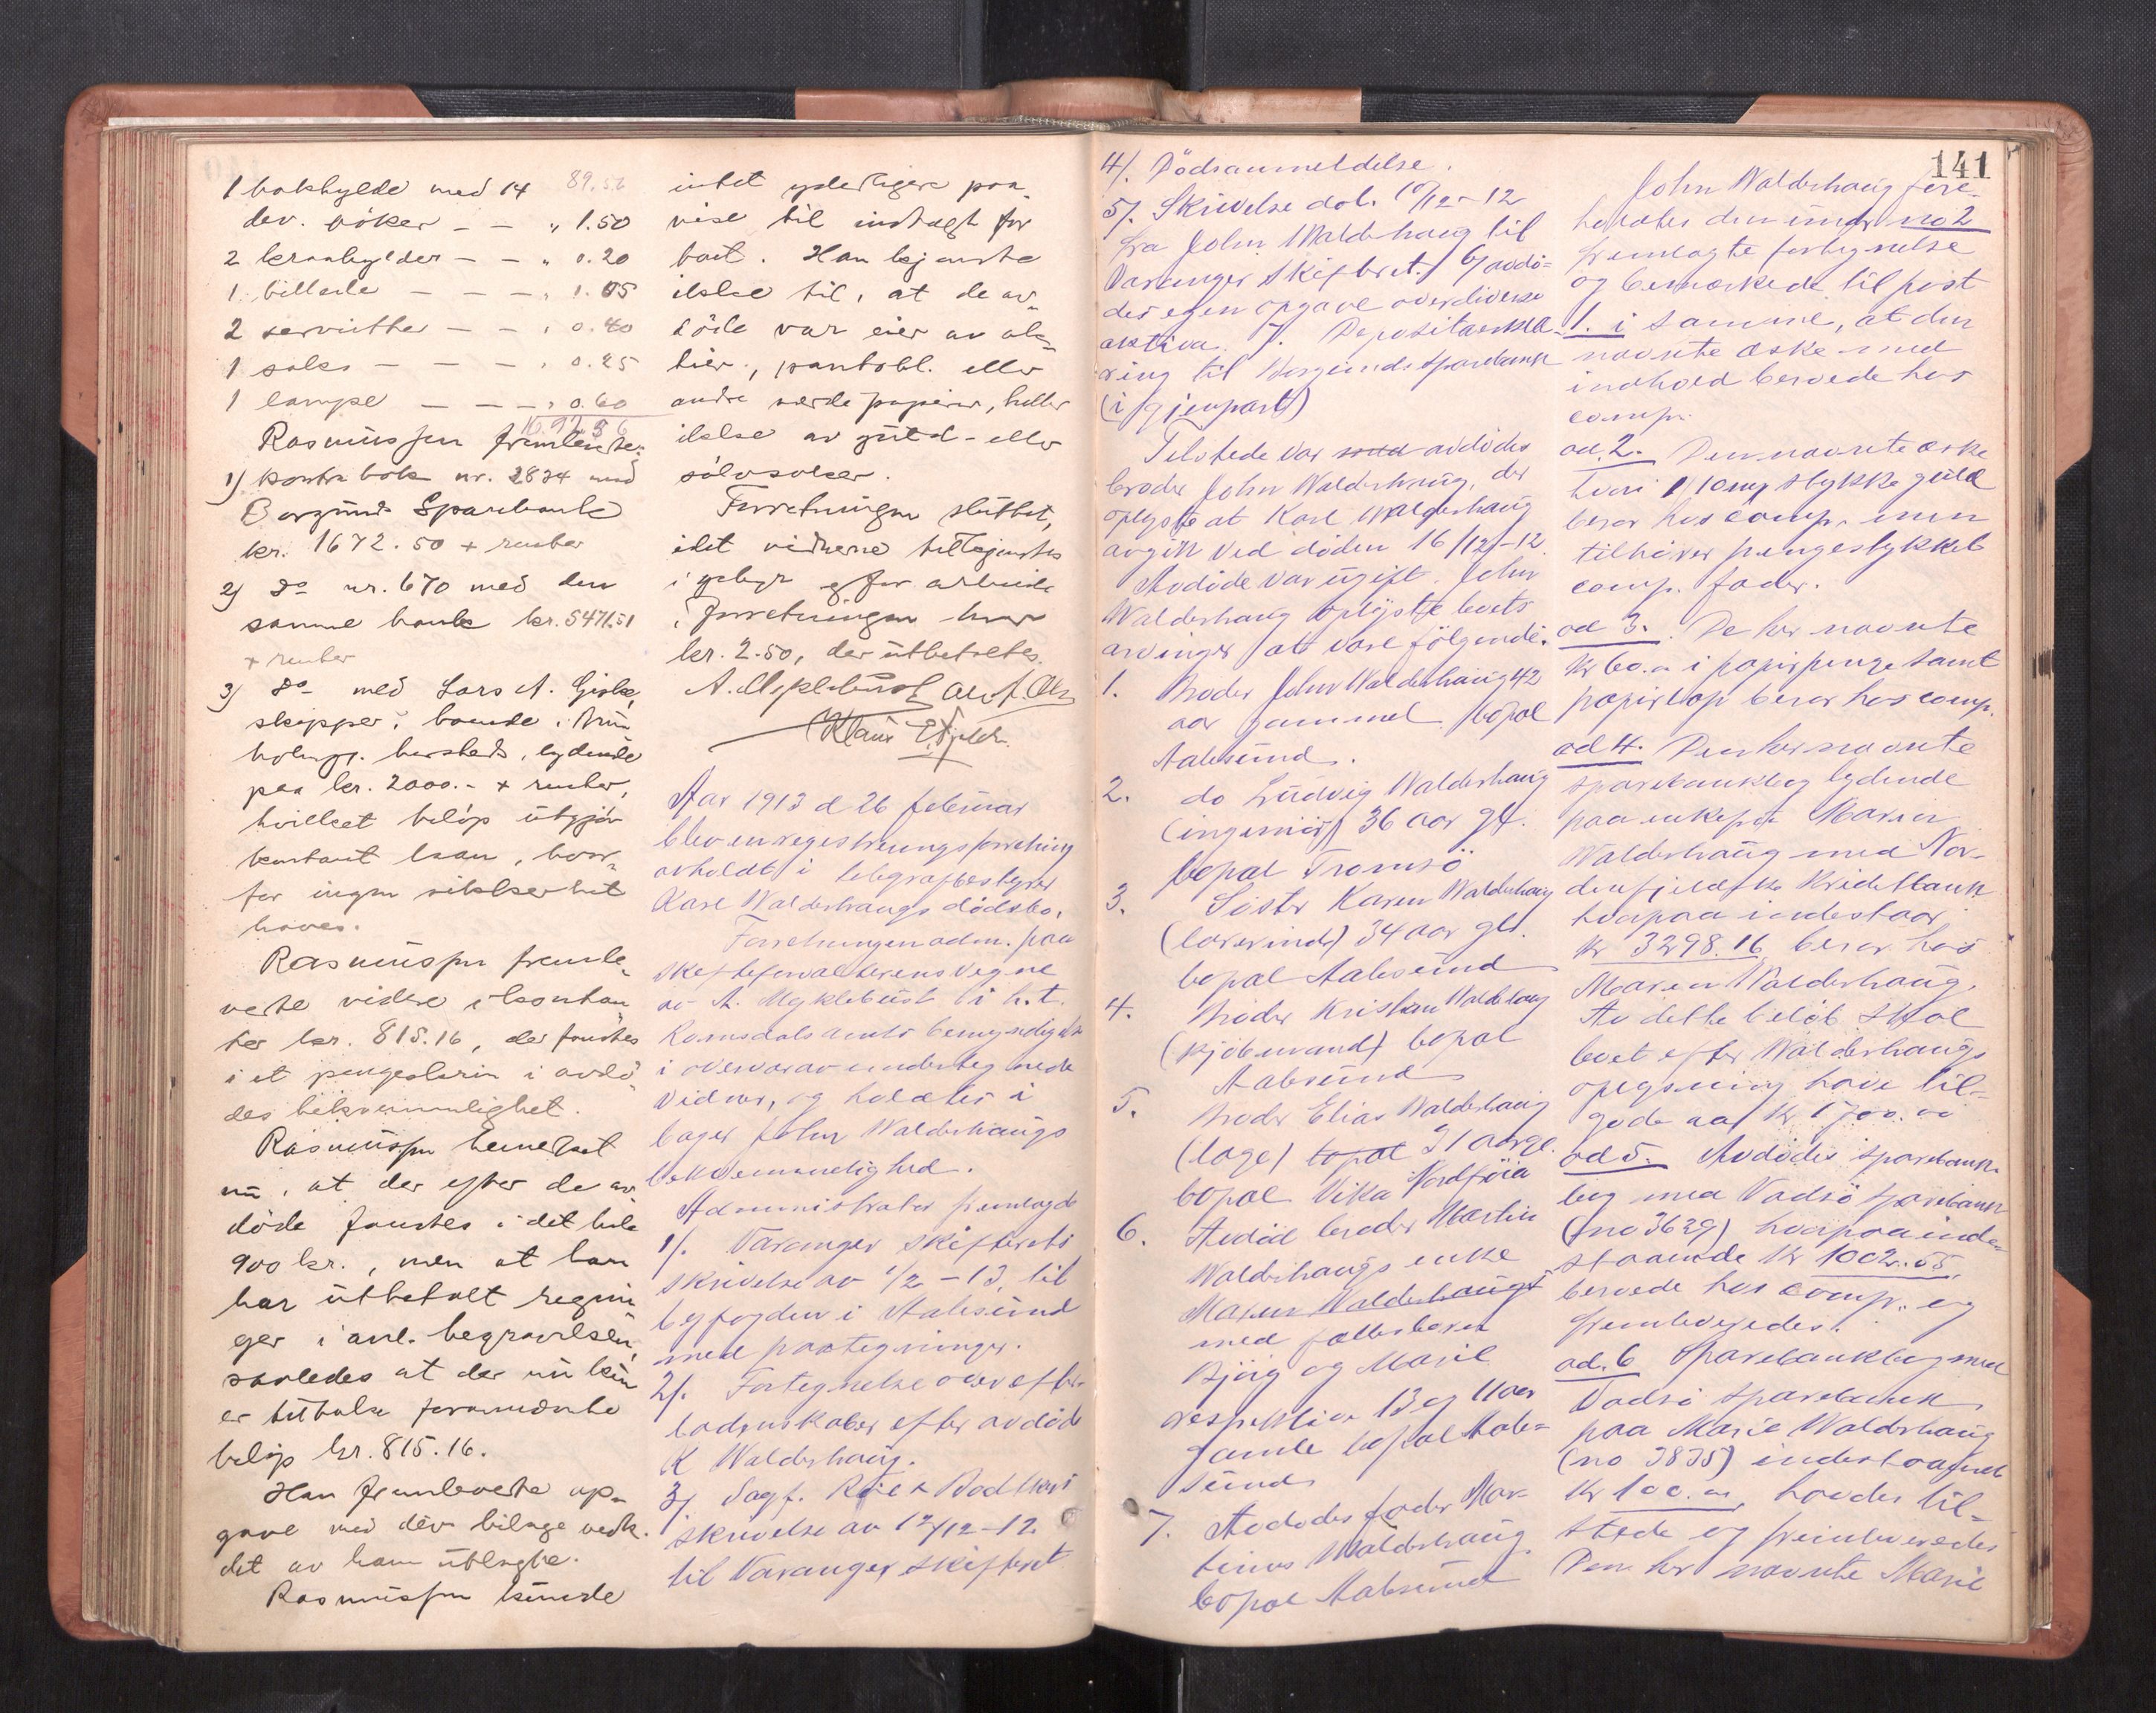 1 bokhylde med 14 89.56
dev. böker — — „ 1.50
2 kraahylder — — „ 0.20
1 billede — — — „ 1.05
2 servietter — — „ 0.40
1 saks — — — „ 0.25
1 lampe — — — „ 0.60
Rasmussen fremleverte:
1) Kontrabok nr. 2834 med
Borgund Sparebank
kr. 1672.50 + renter
2) do nr. 670 med den
samme bank kr. 5471.51
+ renter
3) do med Lars A. Giske,
skipper, boende i
hersteds, lydende
paa kr. 2000.- + renter,
hvilket beløp utgjör
kontant laan, hvor-
for ingen sikkerhet
haves.
Rasmussen fremle-
verte videre i kontan-
ter kr. 815.16, der fandtes
i et pengeskrin i avdö-
des bekvemmelighet.
Rasmussen bemerket
nu, at der efter de av-
döde fandtes i det hele
900 kr., men at han
har utbetalt regnin-
ger i anl. begravelsen,
saaledes at der nu kun
er tilbake forannævnte
beløp kr. 815.16.
Han fremleverte op-
gave med dev. bilage vedk.
det av ham utlagte.
Rasmussen kunde
intet yderligere paa-
vise til indtægt for
boet. Han kjendte
ikke til, at de av-
döde var eier av ak-
tier, pantobl. eller
andre værdipapirer, heller
ikke av guld- eller
sölvsaker.
Forretningen sluttet,
idet vidnerne tilkjendtes
i gebyr for arbeide
i forretningen hver
kr. 2.50, der utbetaltes.
A. Myklebust
Klaus
Aar 1913 d 26 februar
blev en registreringsforretning
avholdt i telegrafbestyrer
Karl Walderhaugs dödsbo.
Forretningen adm. paa
skifteforvalterens vegne
av A. Myklebust i h. t.
Romsdals amts bemyndigelse
i overvær av undertegnede
vidner, og holdtes i
bager John Walderhaugs
bekvemmelighed.
Administrator fremlagde
1/. Varanger skifterets
skrivelse av 1/2 – 13 til
byfogden i Aalesund
med paategninger.
2/. Fortegnelse over efter-
ladenskaber efter avdöde
K Walderhaug.
3/ Sagf.
skrivelse av 12/12–12.
til Varanger skifteret
141
4/. Dödsanmeldelse.
5/. Skrivelse dat. 10/12–12
fra John Walderhaug til
Varanger skifteret. 6/ avdö-
des egen opgave over diverse
aktiva. 7. Depositaerklæ-
ring til Borgunds sparebank
(i gjenpart)
Tilstede var avdödes
broder John Walderhaug, der
oplyste at Karl Walderhaug
avgik ved döden 16/12–12.
Avdöde var ugift. John
Walderhaug oplyste boets
arvinger at være fölgende.
1. Broder John Walderhaug 42
aar gammel bopæl
Aalesund.
2. do Ludvig Walderhaug
(ingeniör) 36 aar gl.
bopæl Tromsö
3. Söster Karen Walderhaug
(lærerinde) 34 aar gl.
bopæl Aalesund
4. Broder Kristian Walderhaug
(kjöbmand) bopæl
Aalesund
5. Broder Elias Walderhaug
(læge) bopæl 31 aar gl.
bopæl Vika Nordfröia
6. Avdöd broder Martin
Walderhaugs enke
Maren Walderhaugs
med fællesbarn
Björg og Marie
respektive 13 og 11 aar
gamle bopæl Aale-
sund
7. Avdödes fader Mar-
tinus Walderhaug
bopæl Aalesund
John Walderhaug fore-
holdtes den under no 2
fremlagte fortegnelse
og bemerkede til post
1. i samme, at den
nævnte æske med
indhold beroede hos
comp.
ad 2. Den nævnte æske
hvori 1 10 mg stykke guld
beror hos comp. men
tilhører pengestykket
comp. fader.
ad 3. De her nævnte
kr 60.00 i papirpenge samt
papirlap beror hos comp.
ad 4. Den her nævnte
sparebankbog lydende
paa enkefru Maren
Walderhaug med Nor-
denfjeldske Kreditbank
hvorpaa indestaar
kr 3298.16 beror hos
Maren Walderhaug.
Av dette belöb skal
boet efter Walderhaugs
oplysning have til-
gode kr 1700.00
ad 5. Avdödes sparebank-
bog med Vadsö sparebank
(no 3629) hvorpaa inde-
staaende kr 1002.55
beroede hos comp. og
fremleveredes.
ad. 6 Sparebankbog med
Vadsö sparebank
paa Marie Walderhaug
(no 3835) indestaaende
kr 100.00 havdes til-
stede og fremleveredes
Den her nævnte Marie